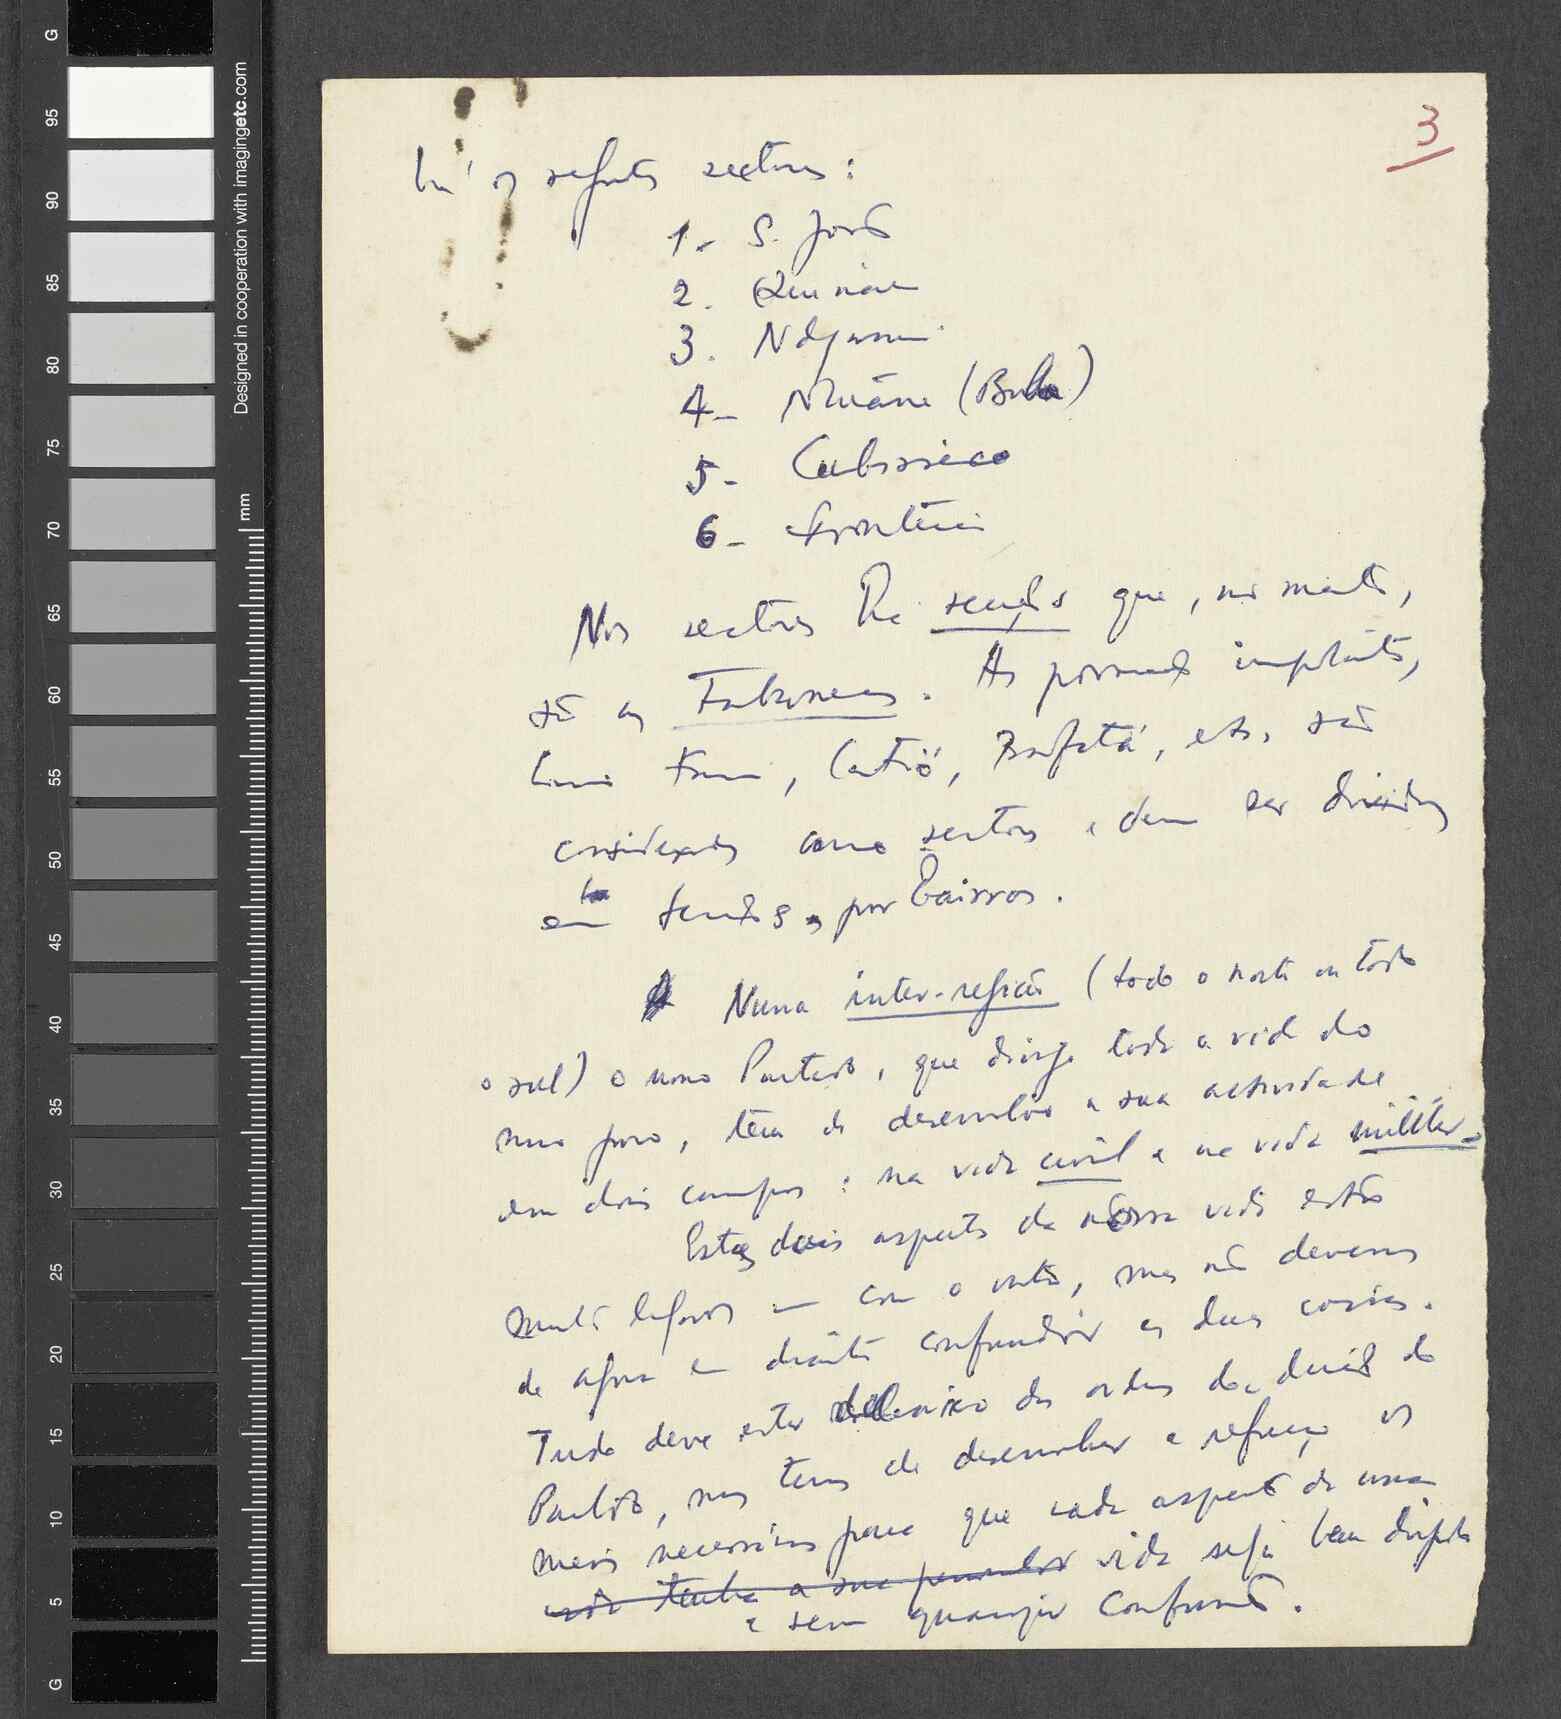 G
95
90
85
80
75
70
65
60
55
50
45
40
35
30
25
20
15
10
5
G
Designed in cooperation with imagingetc.com
mm
3
há os seguintes sectores:
1. S. João
2. Quinara
3.
4- (Bula)
5- Cubisseco
6- Fronteira
Nos sectores há secções que, no mato,
são as Tabancas. As povoações importantes,
como , Catió, Bafatá, etc, são
considerados como sectores e devem ser divididos
em secções, por bairros.
Numa inter-região (todo o norte ou todo
o sul) o nosso Partido, que dirige toda a vida do
nosso povo, tem de desenvolver a sua actividade
em dois campos: na vida civil e na vida militar.
Estes dois aspectos da nossa vida estão
muito ligados um com o outro, mas não devemos
de agora em diante confundir as duas coisas.
Tudo deve estar debaixo das ordens da direcção do
Partido, mas temos de desenvolver e reforçar os
meios necessários para que cada aspecto da nossa
vida tenha a sua vida seja bem dirigida
e sem qualquer confusão.